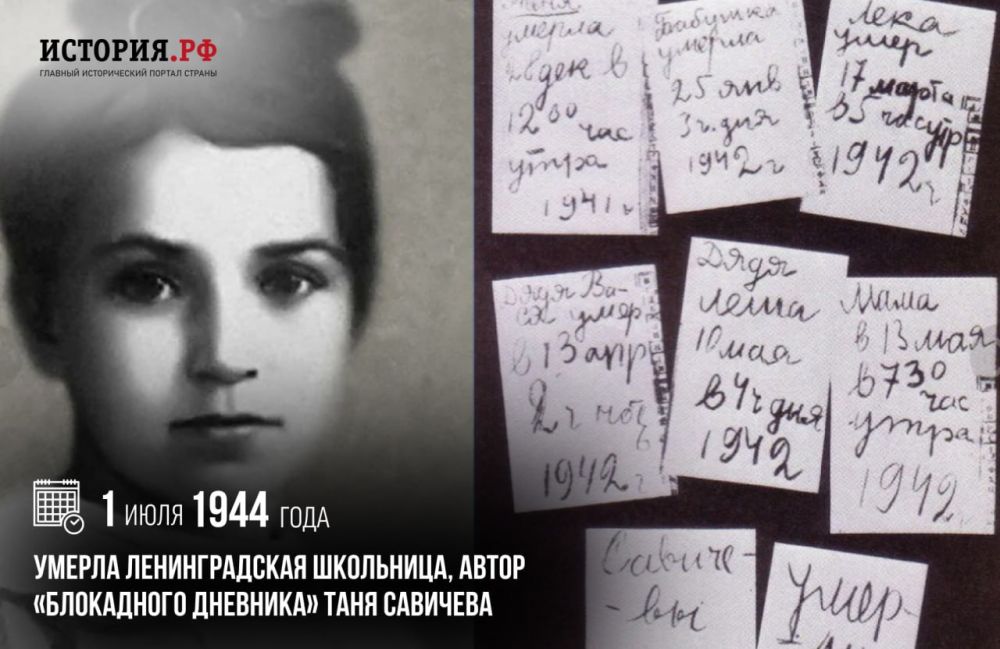 ИСТОРИЯ.РФ
ГЛАВНЫЙ ИСТОРИЧЕСКИЙ ПОРТАЛ СТРАНЫ
1 ИЮЛЯ 1944 ГОДА
УМЕРЛА ЛЕНИНГРАДСКАЯ ШКОЛЬНИЦА, АВТОР
«БЛОКАДНОГО ДНЕВНИКА» ТАНЯ САВИЧЕВА
Женя
умерла
28 дек в
12 00
час
утра
1941 г
Бабушка
умерла
25 янв
3 ч. дня
1942 г
Лека
умер
17 марта
в 5 час утр
1942 г
Дядя Ва-
ся умер
в 13 апр
2 ч ноч
1942 г
Дядя
Леша
10 мая
в 4 ч дня
1942
Мама
в 13 мая
в 7 30
час
утра
1942
Савиче-
-вы
Умер-